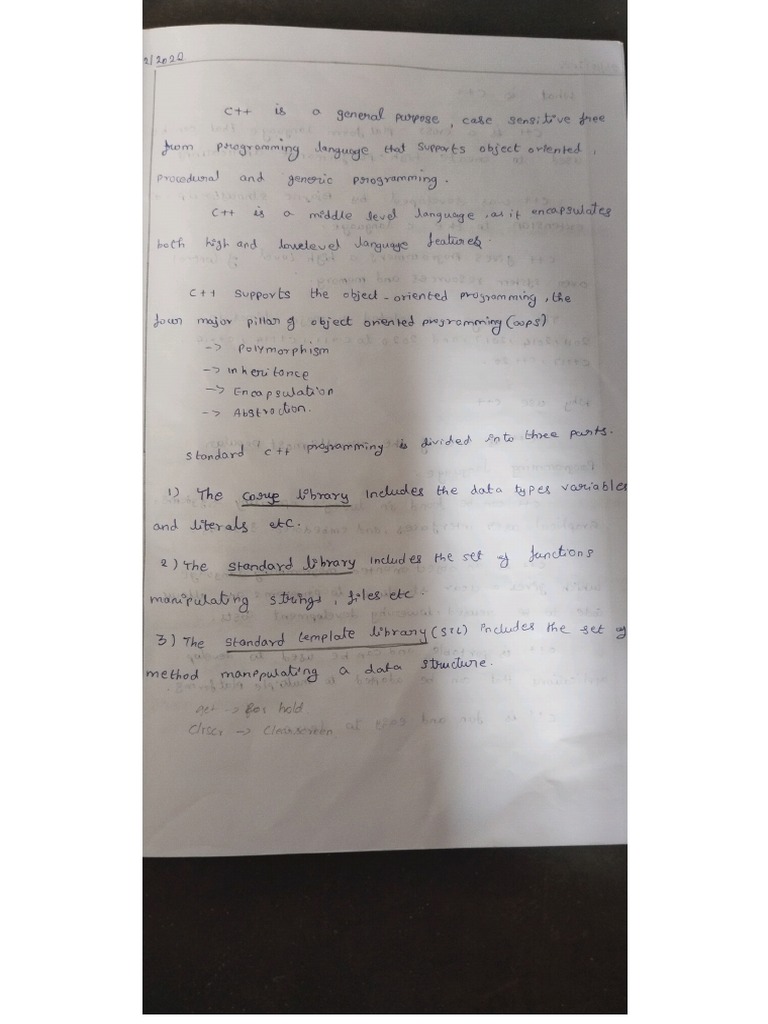 2/2020
C++ is a general purpose, case sensitive free
from programming language that supports object oriented,
procedural and generic programming.
C++ is a middle level language, as it encapsulates
both high and lowelevel language features.
C++ supports the object-oriented programming, the
four major pillar of object oriented programming (oops)
-> Polymorphism
-> inheritance
-> Encapsulation
-> Abstraction.
standard C++ programming is divided into three parts.
1) The library includes the data types variables
and literals etc.
2) The standard library includes the set of functions
manipulating strings, files etc.
3) The standard template library (STL) includes the set of
method manipulating a data structure.
-> for hold
-> Clearscreen